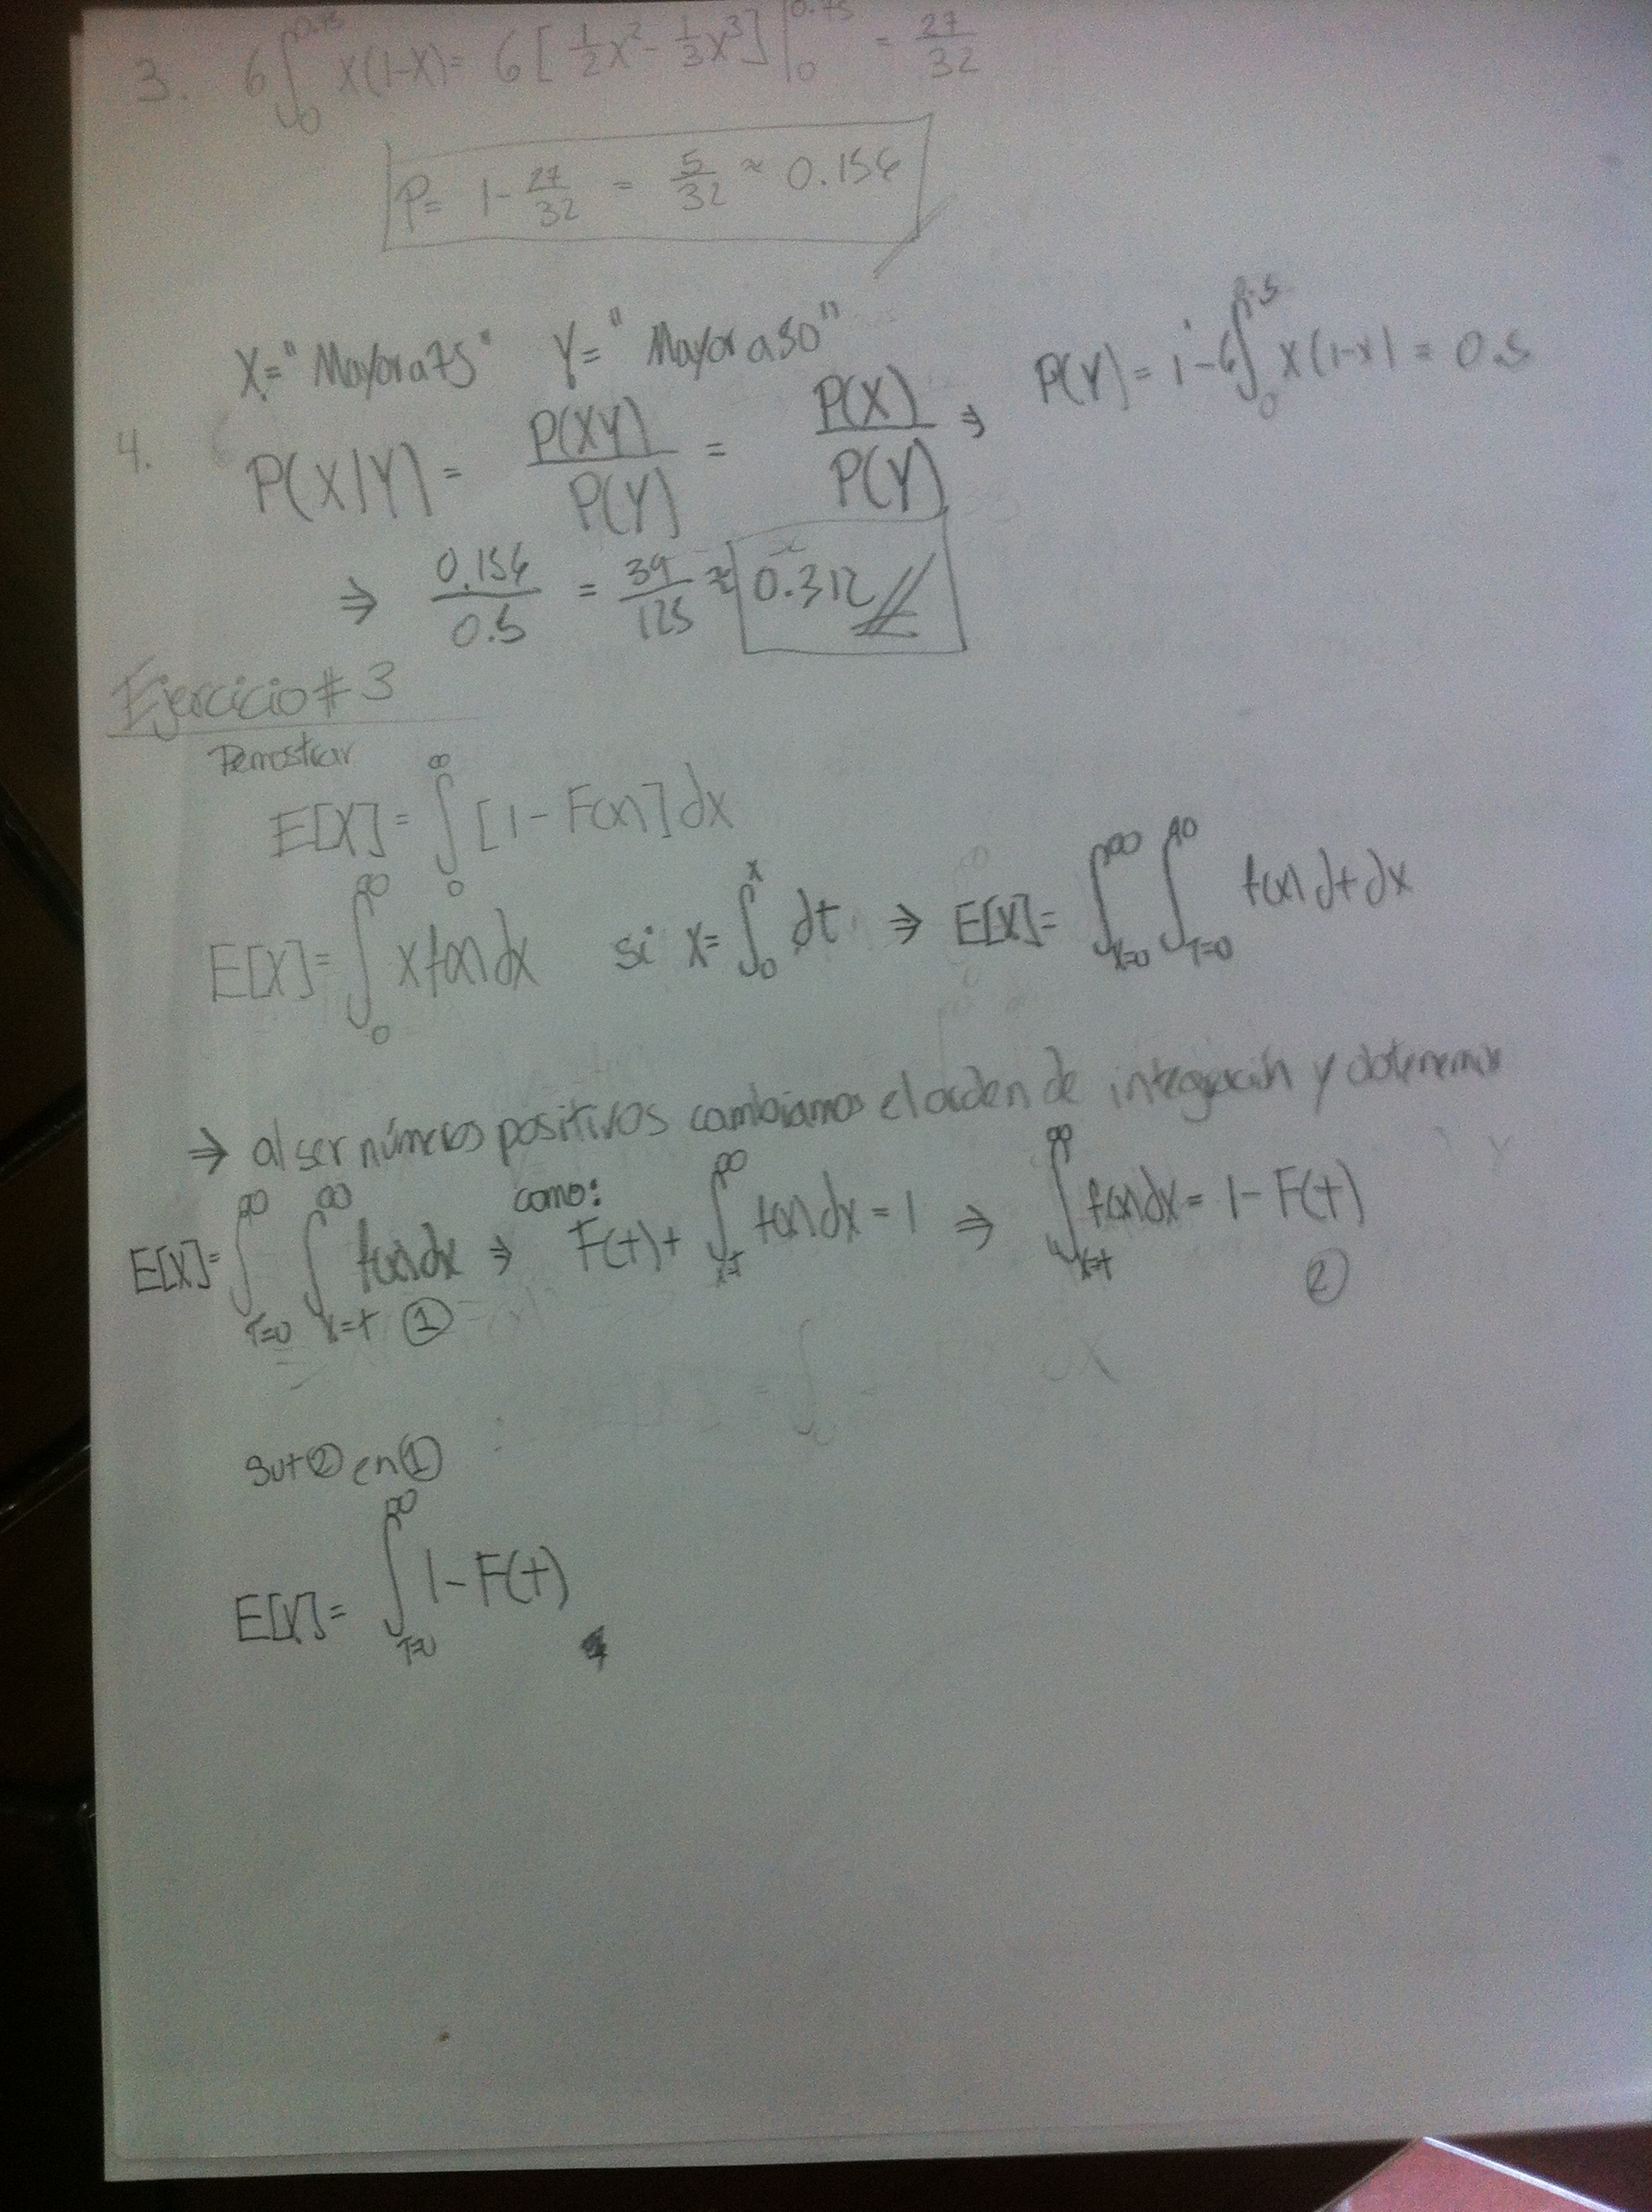 3. 6∫₀^0.75 x(1-x)= 6[½x² - ⅓x³]|₀^0.75 = 27/32
P= 1- 27/32 = 5/32 ≈ 0.156
X="Mayor a 75" Y="Mayor a 50"
4. P(X|Y)= P(XY)/P(Y) = P(X)/P(Y) ⇒ P(Y)= 1-6∫₀^0.5 x(1-x) = 0.5
⇒ 0.156/0.5 = 39/125 ≈ 0.312
Ejercicio #3
Demostrar
E[X]= ∫₀^∞ [1-F(x)]dx
E[X]= ∫₀^∞ x f(x)dx si x= ∫₀^x dt ⇒ E[X]= ∫_{x=0}^∞ ∫_{T=0}^∞ f(x) dt dx
⇒ al ser números positivos cambiamos el orden de integración y obtenemos
E[X]= ∫_{T=0}^∞ ∫_{x=t}^∞ f(x)dx ① ⇒ como: F(t)+ ∫_{x=t}^∞ f(x)dx = 1 ⇒ ∫_{x=t}^∞ f(x)dx = 1-F(t) ②
Sut ② en ①
E[X]= ∫_{T=0}^∞ 1-F(t)